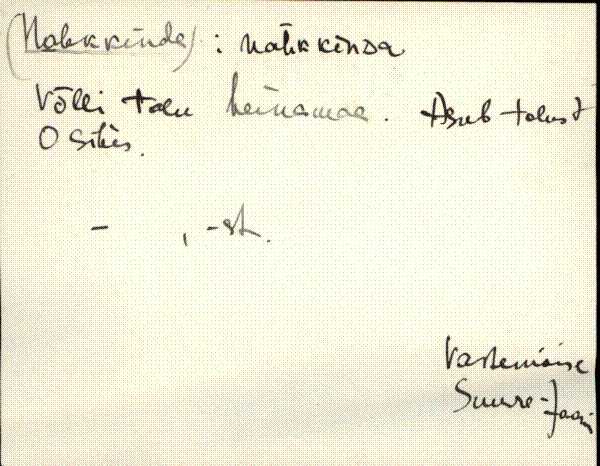 (Nahkkinda) : nahkkinda
Võlli talu heinamaa. Asub talust
O sihis.
- , -st.
Vastemõisa
Suure-Jaani